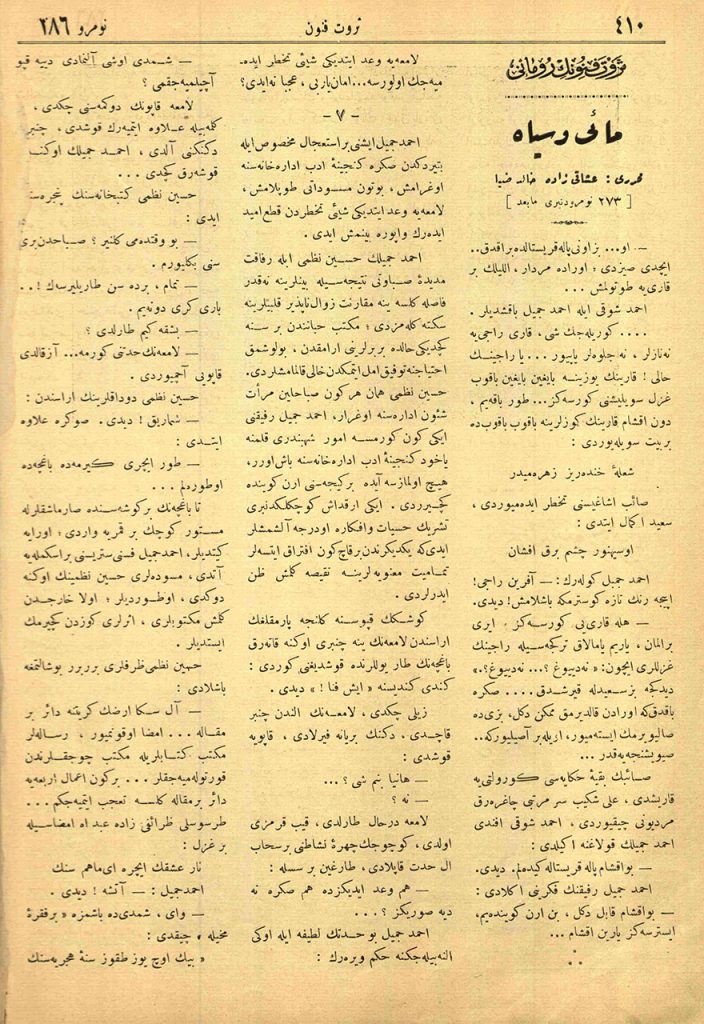 ٤١٠
ثروت فنون
نومرو ٢٨٦
ثروت فنونك رومانی
مائی و سیاه
محرری : عشاقی زاده خالد ضیا
[ ٢٧٣ نومرودنبری مابعد ]
— او... بزاونی پاله قریستالده براقدق..
ایچدی صیزدی ؛ اوراده مردار ، اللیلك بر
قاری یه طوتولمش ...
احمد شوقی ایله احمد جمیل باقشدیلر .
.... کوریله جك شی ، قاری راجی یه
نه نازلر ، نه جلوه لر یاپیور ... یا راجینك
حالی ! قارینك یوزینه بایغین بایغین باقوب
غزل سویلیشنی کورسه کز... طور باقه یم ،
دون اقشام قارینك کوزلرینه باقوب باقوب ده
بر بیت سویله یوردی :
شعلهٔ خنده ریز زهره میدر
صائب اشاغیسنی تخطر ایده میوردی ،
سعید اکمال ایتدی :
اوسپهنور چشم برق افشان
احمد جمیل کوله رك : — آفرین راجی !
اپیجه رنك تازه کوسترمکه باشلامش ! دیدی.
— هله قاری یی کورسه کز ، ایری
برالمان ، یاریم یامالاق ترکجه سیله راجینك
غزللری ایچون : « نه دییوغ ؟... نه دییوغ ؟.»
دیدکجه بزسعیدله قیرشدق .... صکره
باقدق که اورادن قالدیرمق ممکن دکل، بزی ده
صالیویرمك ایسته میور، ایله بر آصیلیورکه..
صیویشنجه یه قدر ...
صائبك بقیهٔ حکایه سی کورولتی یه
قاریشدی ، علی شکیب سر مرتبی چاغیره رق
مردیونی چیقیوردی ، احمد شوقی افندی
احمد جمیلك قولاغنه اکیلدی :
— بواقشام پاله قریستاله کیده لم. دیدی.
احمد جمیل رفیقنك فکرینی اکلادی :
— بواقشام قابل دکل ، بن ارن کوینده یم،
ایسترسه کز یارین اقشام ...
لامعه یه وعد ایتدیکی شیئی تخطر ایده.
میه جك اولورسه ... امان یاربی ، عجبا نه ایدی ؟
— ٧ —
احمد جمیل ایشنی بر استعجال مخصوص ایله
بتیردکدن صکره کنجینهٔ ادب اداره خانه سنه
اوغرامش ، بوتون مسوداتی طوپلامش ،
لامعه یه وعد ایتدیکی شیئی تخطردن قطع امید
ایده رك واپوره بینمش ایدی .
احمد جمیلك حسین نظمی ایله رفاقت
مدیدهٔ صباوتی نتیجه سیله بینلرینه نه قدر
فاصله کلسه ینه مقارنت زوال ناپذیر قلبیلرینه
سکته کله مزدی ؛ مکتب حیاتندن بر سنه
کچدیکی حالده بربرلرینی ارامقدن ، بولوشمق
احتیاجنه توفیق امل ایتمکدن خالی قالمامشلردی.
حسین نظمی همان هر کون صباحلین مرآت
شئون اداره سنه اوغرار، احمد جمیل رفیقنی
ایکی کون کورمسه امور شهبندری قلمنه
یاخود کنجینهٔ ادب اداره خانه سنه باش اورر،
هیچ اولمازسه آیده برکیجه سی ارن کوینده
کچیرردی . ایکی ارقداش کوچکلکدنبری
تشریك حسیات وافکاره اودرجه آلشمشلر
ایدی که یکدیکرندن برقاچ کون افتراق ایتسه لر
تمامیت معنویه لرینه نقیصه کلمش ظن
ایدرلردی .
کوشکك قپوسنه کلنجه پارمقلغك
اراسندن لامعه نك ینه چنبری اوکنه قاته رق
باغچه نك طار یوللرنده قوشدیغنی کوردی :
کندی کندیسنه « ایش فنا ! » دیدی .
زیلی چکدی ، لامعه نك الندن چنبر
قاچدی . دکنك بریانه فیرلادی ، قاپویه
قوشدی :
— هانیا بنم شی ؟ ...
— نه ؟
لامعه درحال طارلدی ، قیپ قرمزی
اولدی ، کوچوجك چهرهٔ نشاطنی بر سحاب
ال حدت قاپلادی ، طارغین بر سسله :
— هم وعد ایدیکزده هم صکره نه
دیه صوریکز ؟ ...
احمد جمیل بو حدتك لطیفه ایله اوکی
النه بیله جکنه حکم ویره رك :
— شمدی اوشی آلنمادی دییه قپو
آچیلمیه جقمی ؟
لامعه قاپونك دوکمه سنی چکدی ،
کلمه بیله علاوه ایتیه رك قوشدی ، چنبر
دکنکنی آلدی ، احمد جمیلك اوکندن
قوشه رق کچدی ...
حسین نظمی کتبخانه سنك پنجره سنده
ایدی :
— بو وقتده می کلنیر ؟ صباحدن بری
سنی بکلیورم .
— تمام ، برده سن طاریلیرسه ك ! ..
باری کری دونه یم .
— بشقه کیم طارلدی ؟
— لامعه نك حدتنی کورمه ... آزقالدی
قاپونی آچمیوردی .
حسین نظمی دوداقلرینك اراسندن :
— شماریق ! دیدی . صوکره علاوه
ایتدی :
— طور ایچری کیرمه ده باغچه ده
اوطوره لم ...
تا باغچه نك بر کوشه سنده صارماشقلرله
مستور کوچك بر قمریه واردی ؛ اورایه
کتدیلر ، احمد جمیل فسنی ستریسنی بر اسکمله یه
آتدی ، مسوده لری حسین نظمینك اوکنه
دوکدی ، اوطوردیلر ؛ اولا خارجدن
کلمش مکتوبلری ، اثرلری کوزدن کچیرمك
ایستدیلر .
حسین نظمی ظرفلری بررر بوشالتمغه
باشلادی :
— آل سکا ارضك کریتنه دائر بر
مقاله ... امضا اوقونمیور ، رساله لر
مکتب کتابلریله مکتب چوجقلرندن
قورتوله میه جقلر ... برکون اعمال اربعه یه
دائر بر مقاله کلسه تعجب ایتمیه جکم ...
طرسوسلی ظرائفی زاده عبد اه امضاسیله
بر غزل :
نار عشقك ایچره ای ماهم سنك
احمد جمیل : — آتشه ! دیدی .
— وای ، شمدی ده باشمزه « بر فقرهٔ
مخیله » چیقدی :
« بیك اوچ یوز طقوز سنهٔ هجریه سنك